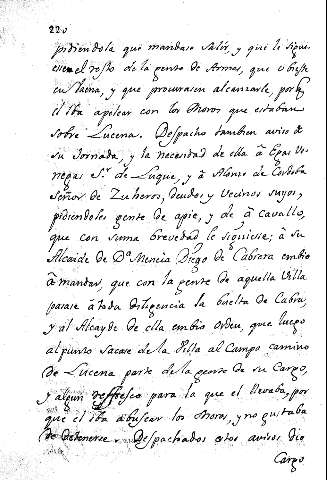 220
pidiendola que mandase salir, y que le sigue-
esen el resto de la gente de Armas, que ubiese
en Baena, y que procurasen alcanzarle, porq.
el iba apelear con los Moros que estaban
sobre Lucena. Despacho tambien aviso de
su Jornada, y la necesidad de ella â Egas Ve-
negas S.r de Luque, y â Alonso de Cordoba
señor de Zuheros, deudos y vecinos suyos,
pidiendoles gente de apie, y de â cavallo,
que con suma brevedad le siguiese; â su
Alcaide de D.a Mencia Diego de Cabrera embio
â mandar, que con la gente de aquella Villa
pasase â toda diligencia la buelta de Cabra,
y al Alcayde de ella embio orden, que luego
al punto sacase de la Villa al Campo camino
de Lucena parte de la gente de su Cargo,
y algun refresco para la que el llevaba, por
que el iba a buscar los Moros, y no gustaba
de detenerse. Despachados estos avisos, dio
Cargo